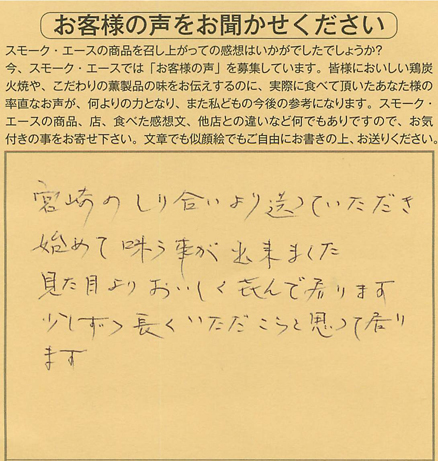 お客様の声をお聞かせください
スモーク・エースの商品を召し上がっての感想はいかがでしたでしょうか?
今、スモーク・エースでは「お客様の声」を募集しています。皆様においしい鶏炭
火焼や、こだわりの薫製品の味をお伝えするのに、実際に食べて頂いたあなた様の
率直なお声が、何よりの力となり、また私どもの今後の参考になります。スモーク・
エースの商品、店、食べた感想文、他店との違いなど何でもありですので、お気
付きの事をお寄せ下さい。文章でも似顔絵でもご自由にお書きの上、お送りください。
宮崎のしり合いより送っていただき
始めて味う事が出来ました
見た目よりおいしく喜んで居ります
少しずつ長くいただこうと思って居り
ます